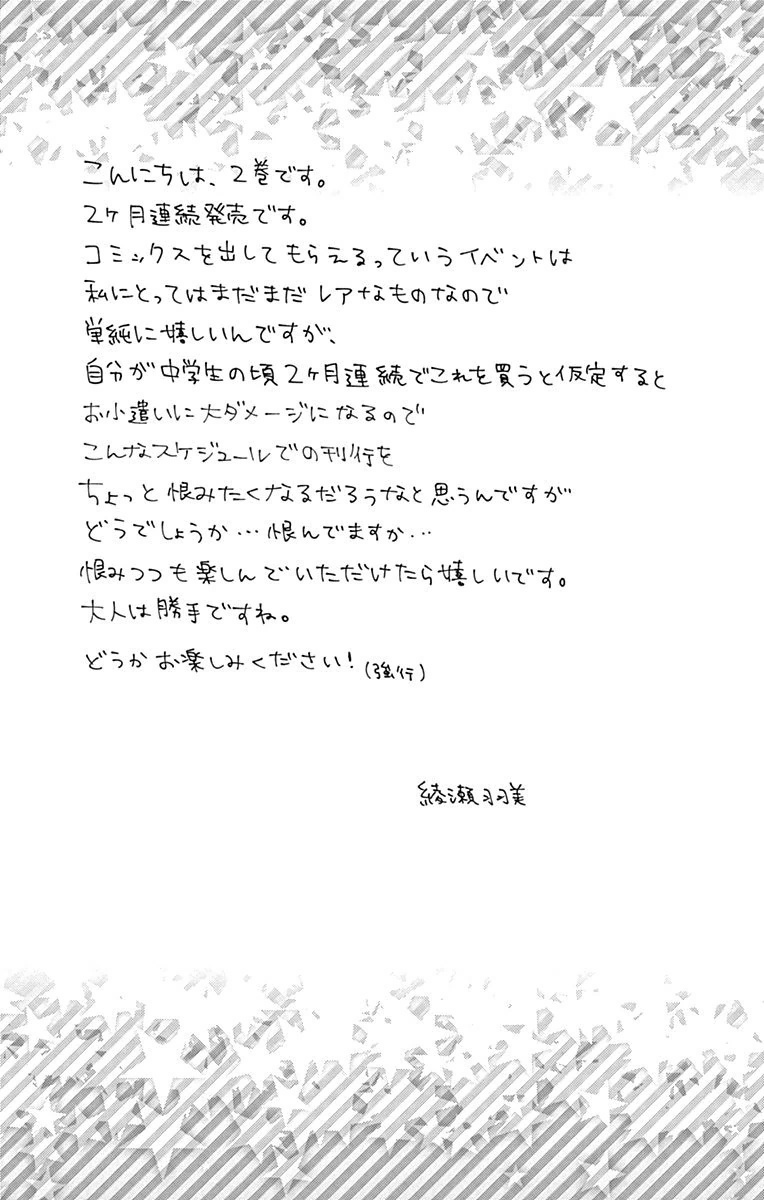 こんにちは、2巻です。
2ヶ月連続発売です。
コミックスを出してもらえるっていうイベントは
私にとってはまだまだレアなものなので
単純に嬉しいんですが、
自分が中学生の頃2ヶ月連続でこれを買うと仮定すると
お小遣いに大ダメージになるので
こんなスケジュールでの刊行を
ちょっと恨みたくなるだろうなと思うんですが
どうでしょうか…恨んでますか…
恨みつつも楽しんでいただけたら嬉しいです。
大人は勝手ですね。
どうかお楽しみください!(強行)
綾瀬羽美